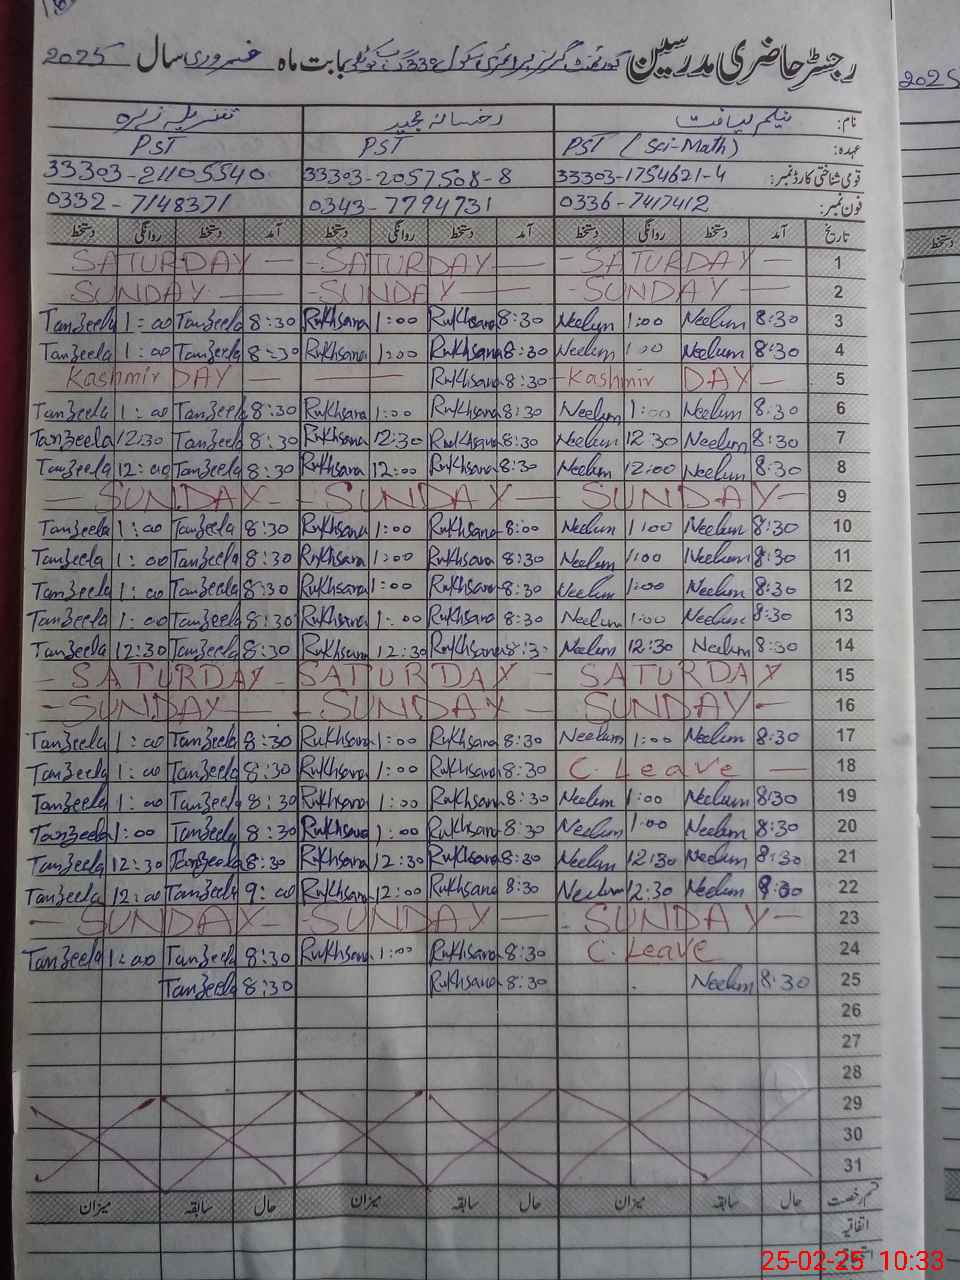 رجسٹر حاضری مدرسین گورنمنٹ گرلز پرائمری سکول 339 گ ب بابت ماہ فروری سال 2025
2025
نام: نیلم لیاقت رخسانہ مجید تنزیلہ زہرہ
عہدہ: PST (Sci-Math) PST PST
قومی شناختی کارڈ نمبر: 33303-1754621-4 33303-2057508-8 33303-21105540
فون نمبر: 0336-7417412 0343-7794731 0332-7148371
تاریخ آمد دستخط روانگی دستخط آمد دستخط روانگی دستخط آمد دستخط روانگی دستخط
دستخط
SATURDAY - SATURDAY - SATURDAY - 1
SUNDAY - SUNDAY - SUNDAY - 2
Tanzeela 1:00 Tanzeela 8:30 Rukhsana 1:00 Rukhsana 8:30 Neelum 1:00 Neelum 8:30 3
Tanzeela 1:00 Tanzeela 8:30 Rukhsana 1:00 Rukhsana 8:30 Neelum 1:00 Neelum 8:30 4
Kashmir DAY - Rukhsana 8:30 Kashmir DAY - 5
Tanzeela 1:00 Tanzeela 8:30 Rukhsana 1:00 Rukhsana 8:30 Neelum 1:00 Neelum 8:30 6
Tanzeela 12:30 Tanzeela 8:30 Rukhsana 12:30 Rukhsana 8:30 Neelum 12:30 Neelum 8:30 7
Tanzeela 12:00 Tanzeela 8:30 Rukhsana 12:00 Rukhsana 8:30 Neelum 12:00 Neelum 8:30 8
- SUNDAY - SUNDAY - SUNDAY - 9
Tanzeela 1:00 Tanzeela 8:30 Rukhsana 1:00 Rukhsana 8:00 Neelum 1:00 Neelum 8:30 10
Tanzeela 1:00 Tanzeela 8:30 Rukhsana 1:00 Rukhsana 8:30 Neelum 1:00 Neelum 8:30 11
Tanzeela 1:00 Tanzeela 8:30 Rukhsana 1:00 Rukhsana 8:30 Neelum 1:00 Neelum 8:30 12
Tanzeela 1:00 Tanzeela 8:30 Rukhsana 1:00 Rukhsana 8:30 Neelum 1:00 Neelum 8:30 13
Tanzeela 12:30 Tanzeela 8:30 Rukhsana 12:30 Rukhsana 8:30 Neelum 12:30 Neelum 8:30 14
- SATURDAY - SATURDAY - SATURDAY 15
- SUNDAY - SUNDAY - SUNDAY - 16
Tanzeela 1:00 Tanzeela 8:30 Rukhsana 1:00 Rukhsana 8:30 Neelum 1:00 Neelum 8:30 17
Tanzeela 1:00 Tanzeela 8:30 Rukhsana 1:00 Rukhsana 8:30 C. Leave - 18
Tanzeela 1:00 Tanzeela 8:30 Rukhsana 1:00 Rukhsana 8:30 Neelum 1:00 Neelum 8:30 19
Tanzeela 1:00 Tanzeela 8:30 Rukhsana 1:00 Rukhsana 8:30 Neelum 1:00 Neelum 8:30 20
Tanzeela 12:30 Tanzeela 8:30 Rukhsana 12:30 Rukhsana 8:30 Neelum 12:30 Neelum 8:30 21
Tanzeela 12:00 Tanzeela 9:00 Rukhsana 12:00 Rukhsana 8:30 Neelum 12:30 Neelum 22
- SUNDAY - SUNDAY - SUNDAY - 23
Tanzeela 1:00 Tanzeela 8:30 Rukhsana 1:00 Rukhsana 8:30 C. Leave 24
Tanzeela 8:30 Rukhsana 8:30 Neelum 8:30 25
26
27
28
29
30
31
قسم رخصت حال سابقہ میزان حال سابقہ میزان حال سابقہ میزان
اتفاقیہ
25-02-25 10:33